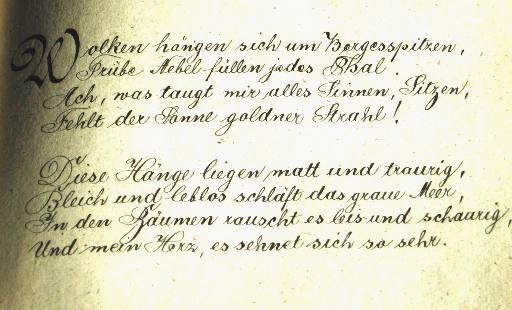 Wolken hängen sich um Bergesspitzen,
Trübe Nebel füllen jedes Thal.
Ach, was taugt mir alles Sinnen, Sitzen,
Fehlt der Sonne goldner Strahl!
Diese Hänge liegen matt und traurig,
Bleich und leblos schläft das graue Meer,
In den Bäumen rauscht es leis und schaurig,
Und mein Herz, es sehnet sich so sehr.